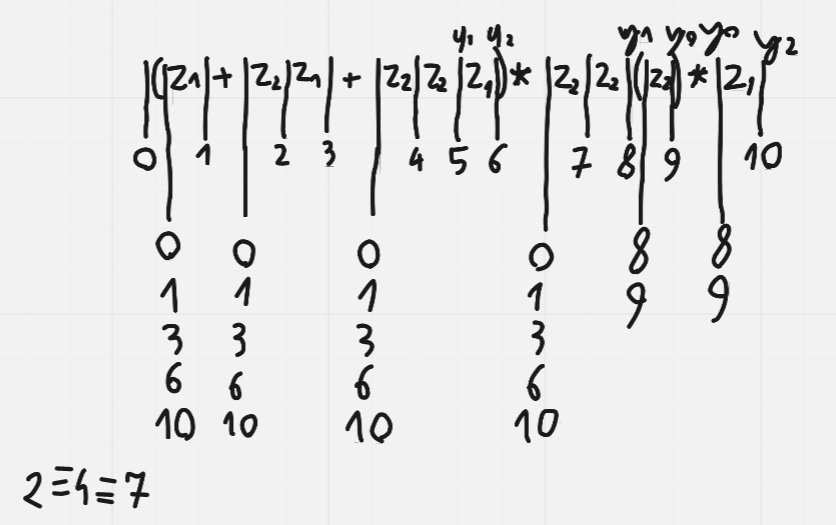 y₁ y₂ y₁ y₂
|(|Z₁|+|Z₂|Z₁|+|Z₂|Z₂|Z₁|)*|Z₂|Z₂|(|Z₂|)*|Z₁|
0 1 2 3 4 5 6 7 8 9 10
0 0 0 0 8 8
1 1 1 1 9 9
3 3 3 3
6 6 6 6
10 10 10 10
2≡4≡7